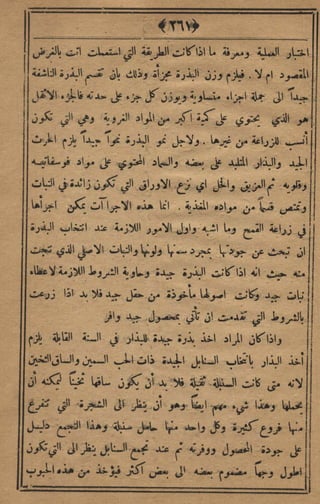 ﴿٢٦١﴾
اختبار العملية ومعرفة ما اذا كانت الطريقة التي استعملت اتت بالغرض
المقصود ام لا . فيلزم وزن البذرة مجزأة وذلك بان تقسم البذرة الناشفة
جيداً الى جملة اجزاء متساوية وبوزن كل جزء على حدته فالجزء الاثقل
هو الذي يحتوي على كمية اكبر من المواد الغروية وهي التي تكون
أنسب للزراعة من غيرها . ولاجل نمو البذرة نمواً جيداً يلزم الحرث
الجيد والبذار المتلبد على بعضه والسماد المحتوي على مواد فوسفاتيه
وقلويه ثم العزيق والخل اي نزع الاوراق التي تكون زائدة في النبات
وتمتص قسماً من مواده المغذية . انما هذه الاجراآت يمكن اجراها
في زراعة القمح وما اشبه واول الامور اللازمة عند انتخاب البذرة
ان تبحث عن جودتها بمجرد سنها ولونها والنبات الاصلي الذي نتجت
منه حيث انه اذا كانت البذرة جيدة وحاوية الشروط اللازمة لاعطاء
نبات جيد وكانت اصولها مأخوذة من حقل جيد فلا بد اذا زرعت
بالشروط التي تقدمت ان تأتي بمحصول جيد وافر
واذا كان المراد اخذ بذرة جيدة للبذار في السنة القابلة يلزم
أخذ البذار بانتخاب السنابل الجيدة ذات الحب السمين والساق الثخين
لانه متى كانت السنبلة ثقيلة فلا بد أن يكون ساقها ثخيناً ليمكنه أن
يحملها وهذا شيء مهم ايضاً وهو أن ينظر الى الشجرة التي تتفرع
منها فروع كثيرة وكل واحد منها حامل سنبلة وهذا التجمع دليل
على جودة المحصول ووفرته ثم عند تجمع السنابل ينظر الى التي تكون
اطول وجهاً مضموم بعضه الى بعض اكثر فيؤخذ من هذه الحبوب